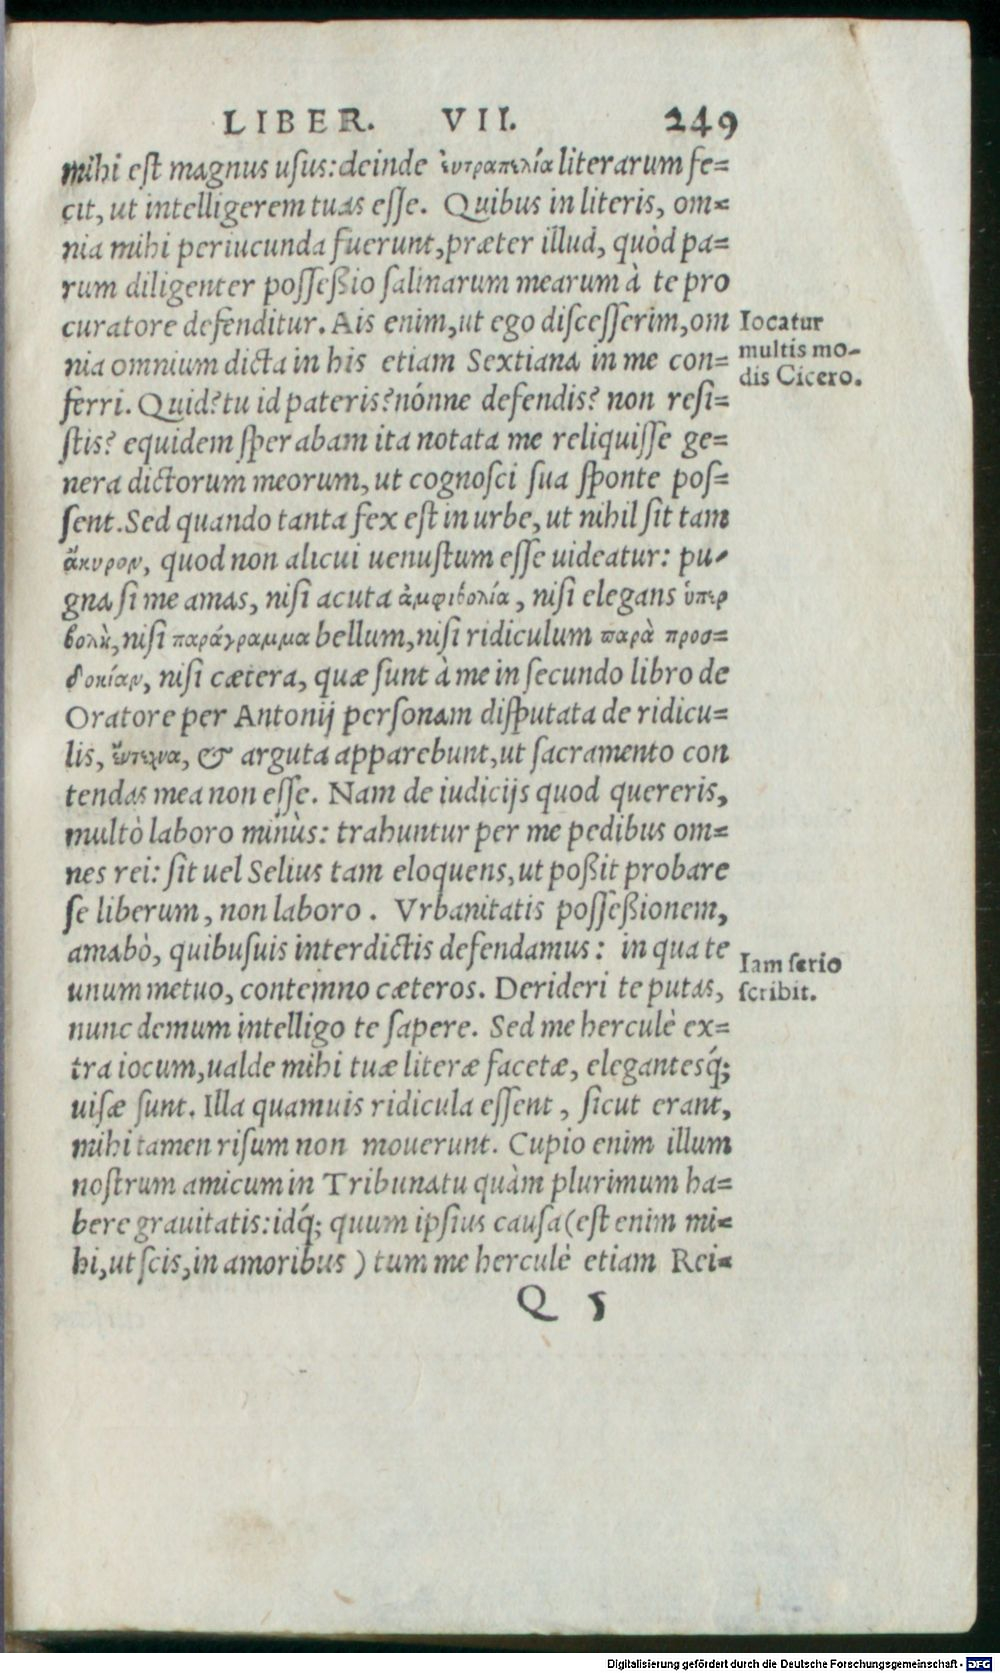 LIBER. VII. 249
mihi est magnus usus: deinde ἐυτραπελία literarum fe=
cit, ut intelligerem tuas esse. Quibus in literis, om=
nia mihi periucunda fuerunt, præter illud, quòd pa=
rum diligenter possessio salinarum mearum à te pro
curatore defenditur. Ais enim, ut ego discesserim, om
nia omnium dicta in his etiam Sextiana in me con=
ferri. Quid? tu id pateris? nónne defendis? non resi=
stis? equidem sperabam ita notata me reliquisse ge=
nera dictorum meorum, ut cognosci sua sponte pos=
sent. Sed quando tanta fex est in urbe, ut nihil sit tam
ἄκυρον, quod non alicui uenustum esse uideatur: pu=
gna si me amas, nisi acuta ἀμφιβολία, nisi elegans ὑπερ
βολὴ, nisi παράγραμμα bellum, nisi ridiculum παρὰ προσ=
δοκίαν, nisi cætera, quæ sunt à me in secundo libro de
Oratore per Antonij personam disputata de ridicu=
lis, ἔντεχνα, & arguta apparebunt, ut sacramento con
tendas mea non esse. Nam de iudicijs quod quereris,
multò laboro minùs: trahuntur per me pedibus om=
nes rei: sit uel Selius tam eloquens, ut possit probare
se liberum, non laboro. Vrbanitatis possessionem,
amabò, quibusuis interdictis defendamus: in qua te
unum metuo, contemno cæteros. Derideri te putas,
nunc demum intelligo te sapere. Sed me herculè ex=
tra iocum, ualde mihi tuæ literæ facetæ, elegantesq́;
uisæ sunt. Illa quamuis ridicula essent, sicut erant,
mihi tamen risum non mouerunt. Cupio enim illum
nostrum amicum in Tribunatu quàm plurimum ha=
bere grauitatis: idq́; quum ipsius causa (est enim mi=
hi, ut scis, in amoribus) tum me herculè etiam Rei=
Q 5
Iocatur
multis mo-
dis Cicero.
Iam serio
scribit.
Digitalisierung gefördert durch die Deutsche Forschungsgemeinschaft - DFG